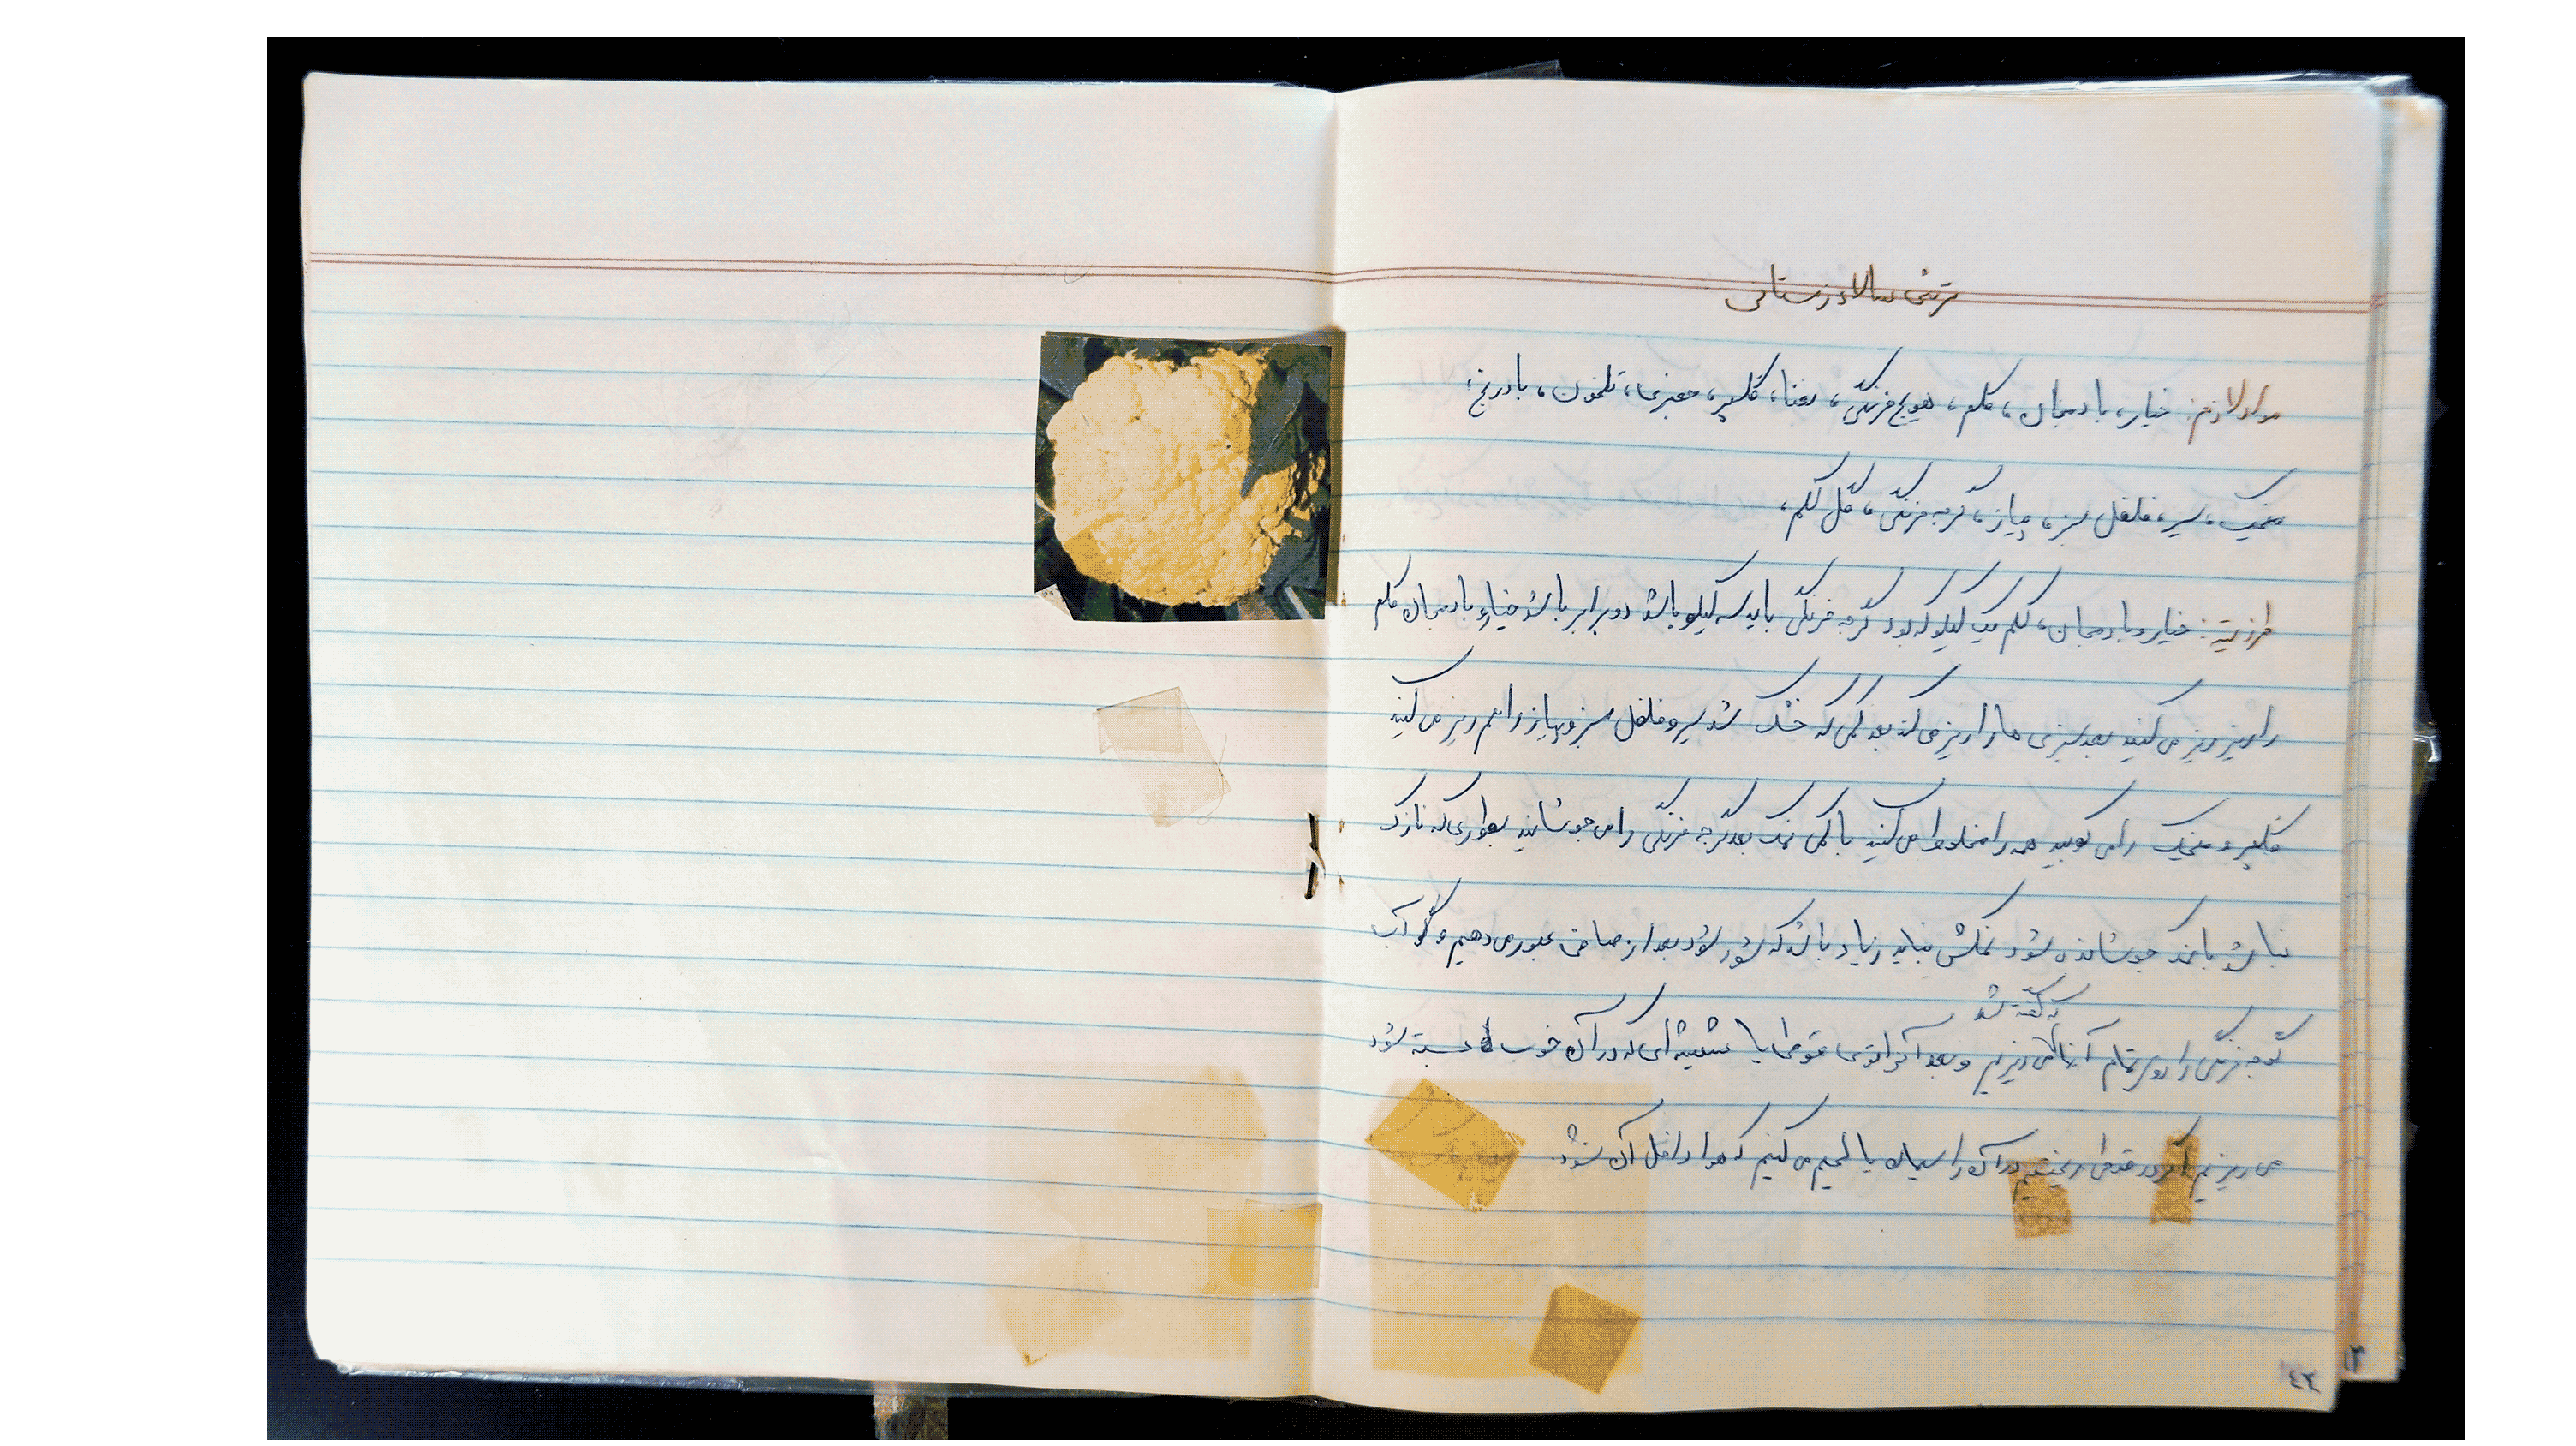 ترشی سالاد زمستانی
مواد لازم: خیار، بادمجان، کلم، هویج فرنگی، نعنا، گلپر، جعفری، ترخون، بادرنج،
میخک، سیر، فلفل سبز، پیاز، گوجه فرنگی، گل کلم،
طرز تهیه: خیار و بادمجان، کلم یک کیلو که بود گوجه فرنگی باید سه کیلو باشد دو برابر باشد خیار و بادمجان کلم
را ریز ریز می کنید بعد سبزی ها را ریز می کند بعد کمی که خشک شد سیر و فلفل سبز و پیاز را هم ریز می کنید
گلپر و میخک را می کوبید همه را مخلوط می کنید با کمی نمک بعد گوجه فرنگی را می جوشانید بطوری که نازک
نباشد با نمک جوشانده شود نمکش نباید زیاد باشد که شور شود بعد از صافی عبور می دهیم و آب
گوجه فرنگی را روی تمام آنها که گفته شد می ریزیم و بعد آنرا توی قوطی یا شیشه ای که در آن خوب بسته شود
می ریزیم اگر در قوطی ریختیم در آن را سیمان یا لحیم می کنیم که هوا داخل آن نشود.
٤٣